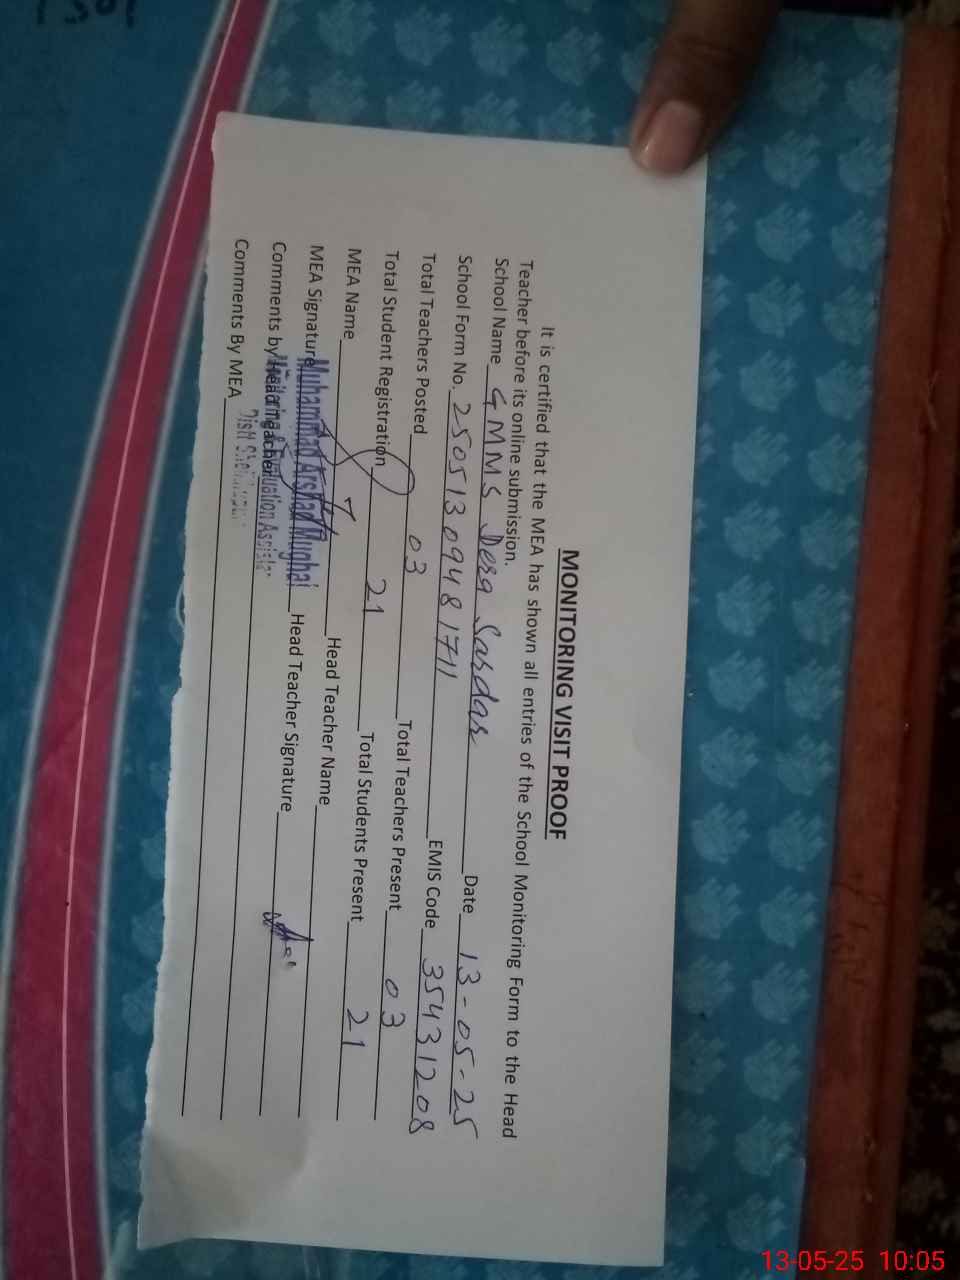 MONITORING VISIT PROOF
It is certified that the MEA has shown all entries of the School Monitoring Form to the Head
Teacher before its online submission.
School Name GMMS Dera Sardar Date 13-05-25
School Form No. 2505130948171 EMIS Code 35431208
Total Teachers Posted 03 Total Teachers Present 03
Total Student Registration 21 Total Students Present 21
MEA Name Head Teacher Name
MEA Signature Muhammad Arshad Mughal Head Teacher Signature
Comments by Head Teacher
Comments By MEA
13-05-25 10:05